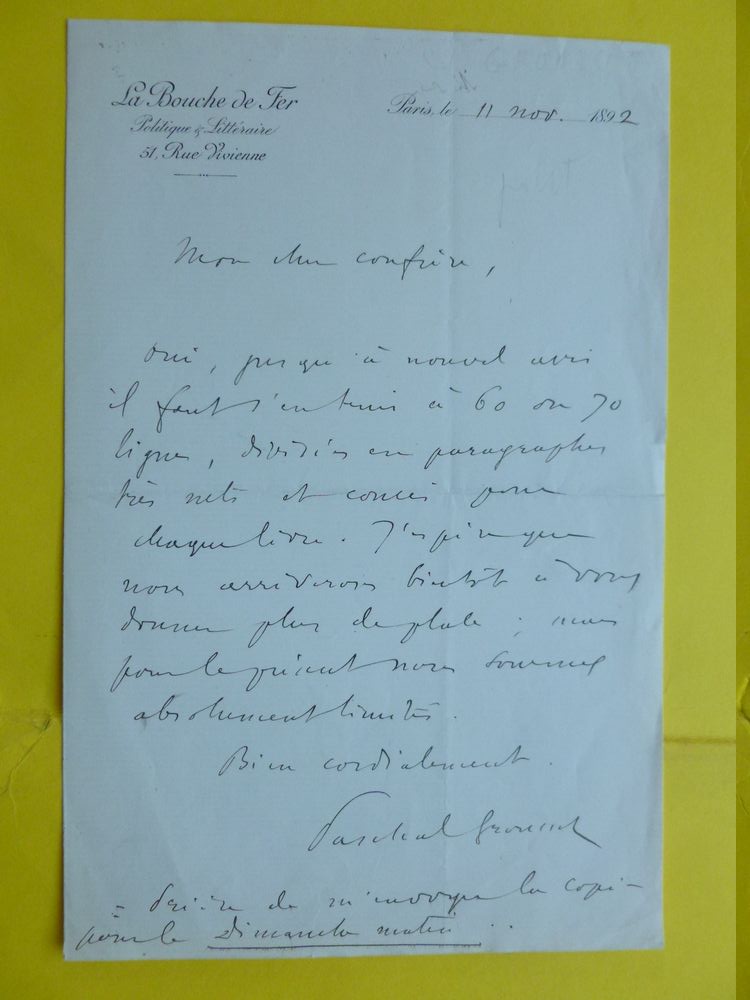 La Bouche de Fer
Politique & Littéraire
51, Rue Vivienne
Paris, le 11 nov. 1892
Mon cher confrère,
Oui, jusqu'à nouvel avis
il faut s'en tenir à 60 ou 70
lignes, divisées en paragraphes
très nets et concis pour
chaque livre. J'espère que
nous arriverons bientôt à vous
donner plus de place ; mais
pour le présent nous sommes
absolument limités.
Bien cordialement.
Paschal Grousset
– Prière de m'envoyer la copie
pour le Dimanche matin